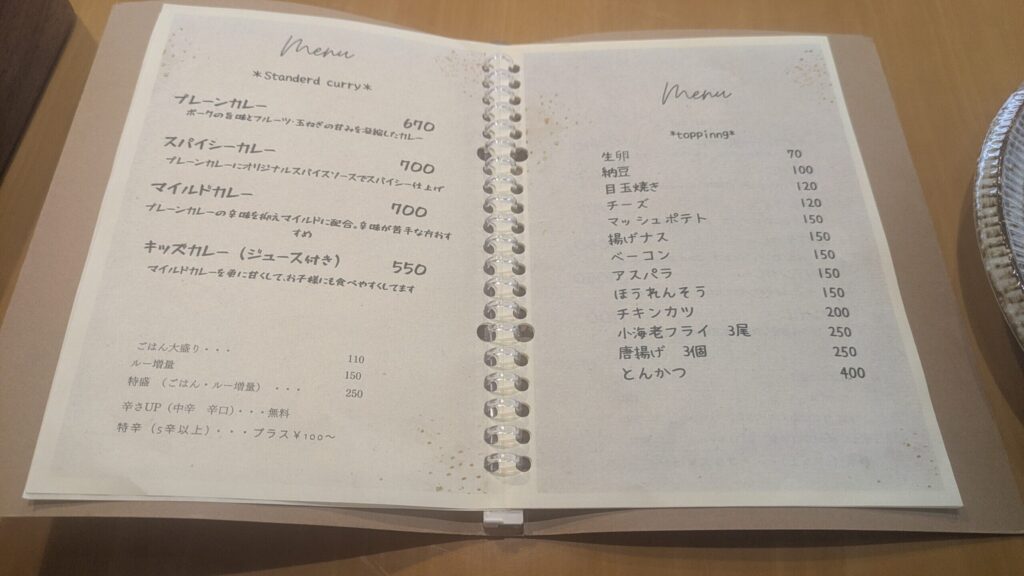 Menu
*Standerd curry*
プレーンカレー 670
ポークの旨味とフルーツ・玉ねぎの甘みを凝縮したカレー
スパイシーカレー 700
プレーンカレーにオリジナルスパイスソースでスパイシー仕上げ
マイルドカレー 700
プレーンカレーの辛味を抑えマイルドに配合。辛味が苦手な方おす
すめ
キッズカレー（ジュース付き） 550
マイルドカレーを更に甘くして、お子様にも食べやすくしてます
ごはん大盛り・・・ 110
ルー増量 150
特盛（ごはん・ルー増量）・・・ 250
辛さUP（中辛　辛口）・・・無料
特辛（5辛以上）・・・プラス￥100～
Menu
*toppinng*
生卵 70
納豆 100
目玉焼き 120
チーズ 120
マッシュポテト 150
揚げナス 150
ベーコン 150
アスパラ 150
ほうれんそう 150
チキンカツ 200
小海老フライ　3尾 250
唐揚げ　3個 250
とんかつ 400